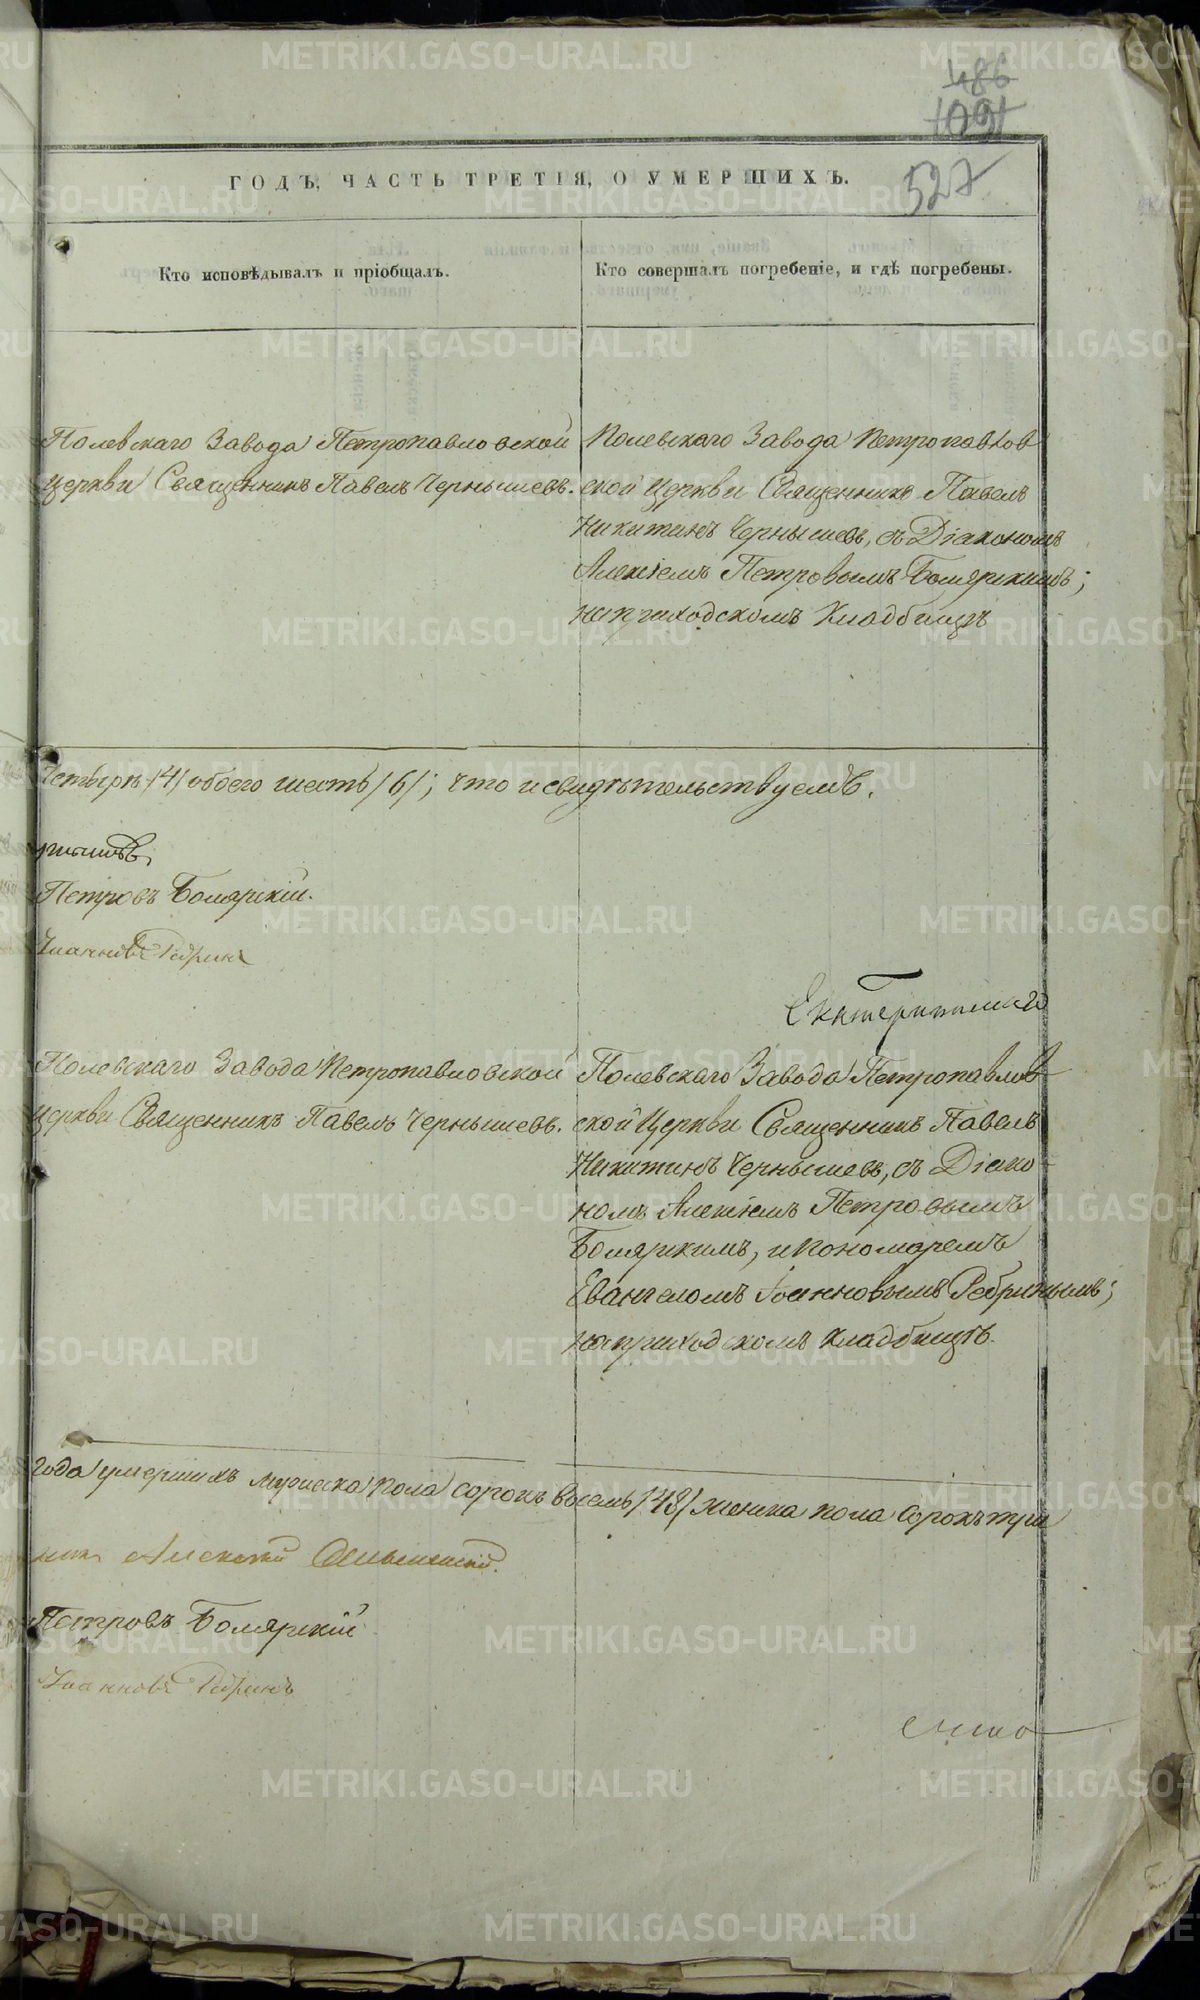 486
1091
527
ГОДЪ, ЧАСТЬ ТРЕТІЯ, О УМЕРШИХЪ.
Кто исповѣдывалъ и пріобщалъ.
Кто совершалъ погребеніе, и гдѣ погребены.
Полевскаго Завода Петропавловской
церкви Священникъ Павелъ Чернышевъ.
Полевскаго Завода Петропавлов
ской Церкви Священникъ Павелъ
Никитинъ Чернышевъ, съ Діакономъ
Алексіемъ Петровымъ Боярскимъ;
на приходскомъ Кладбищѣ
четыре /4/ обоего шесть /6/; что и свидѣтельствуемъ.
Петровъ Боярскій.
Іоанновъ Ребринъ
Екатерининскаго
Полевскаго Завода Петропавловской
церкви Священникъ Павелъ Чернышевъ.
Полевскаго Завода Петропавлов
ской Церкви Священникъ Павелъ
Никитинъ Чернышевъ, съ Діако-
номъ Алексіемъ Петровымъ
Боярскимъ, и пономаремъ
Евангеломъ Іоанновымъ Ребринымъ;
на приходскомъ кладбищѣ.
года умершихъ мужеска пола сорокъ восемь /48/ женска пола сорокъ три
Алексѣй
Петровъ Боярскій
Іоанновъ Ребринъ
METRIKI.GASO-URAL.RU